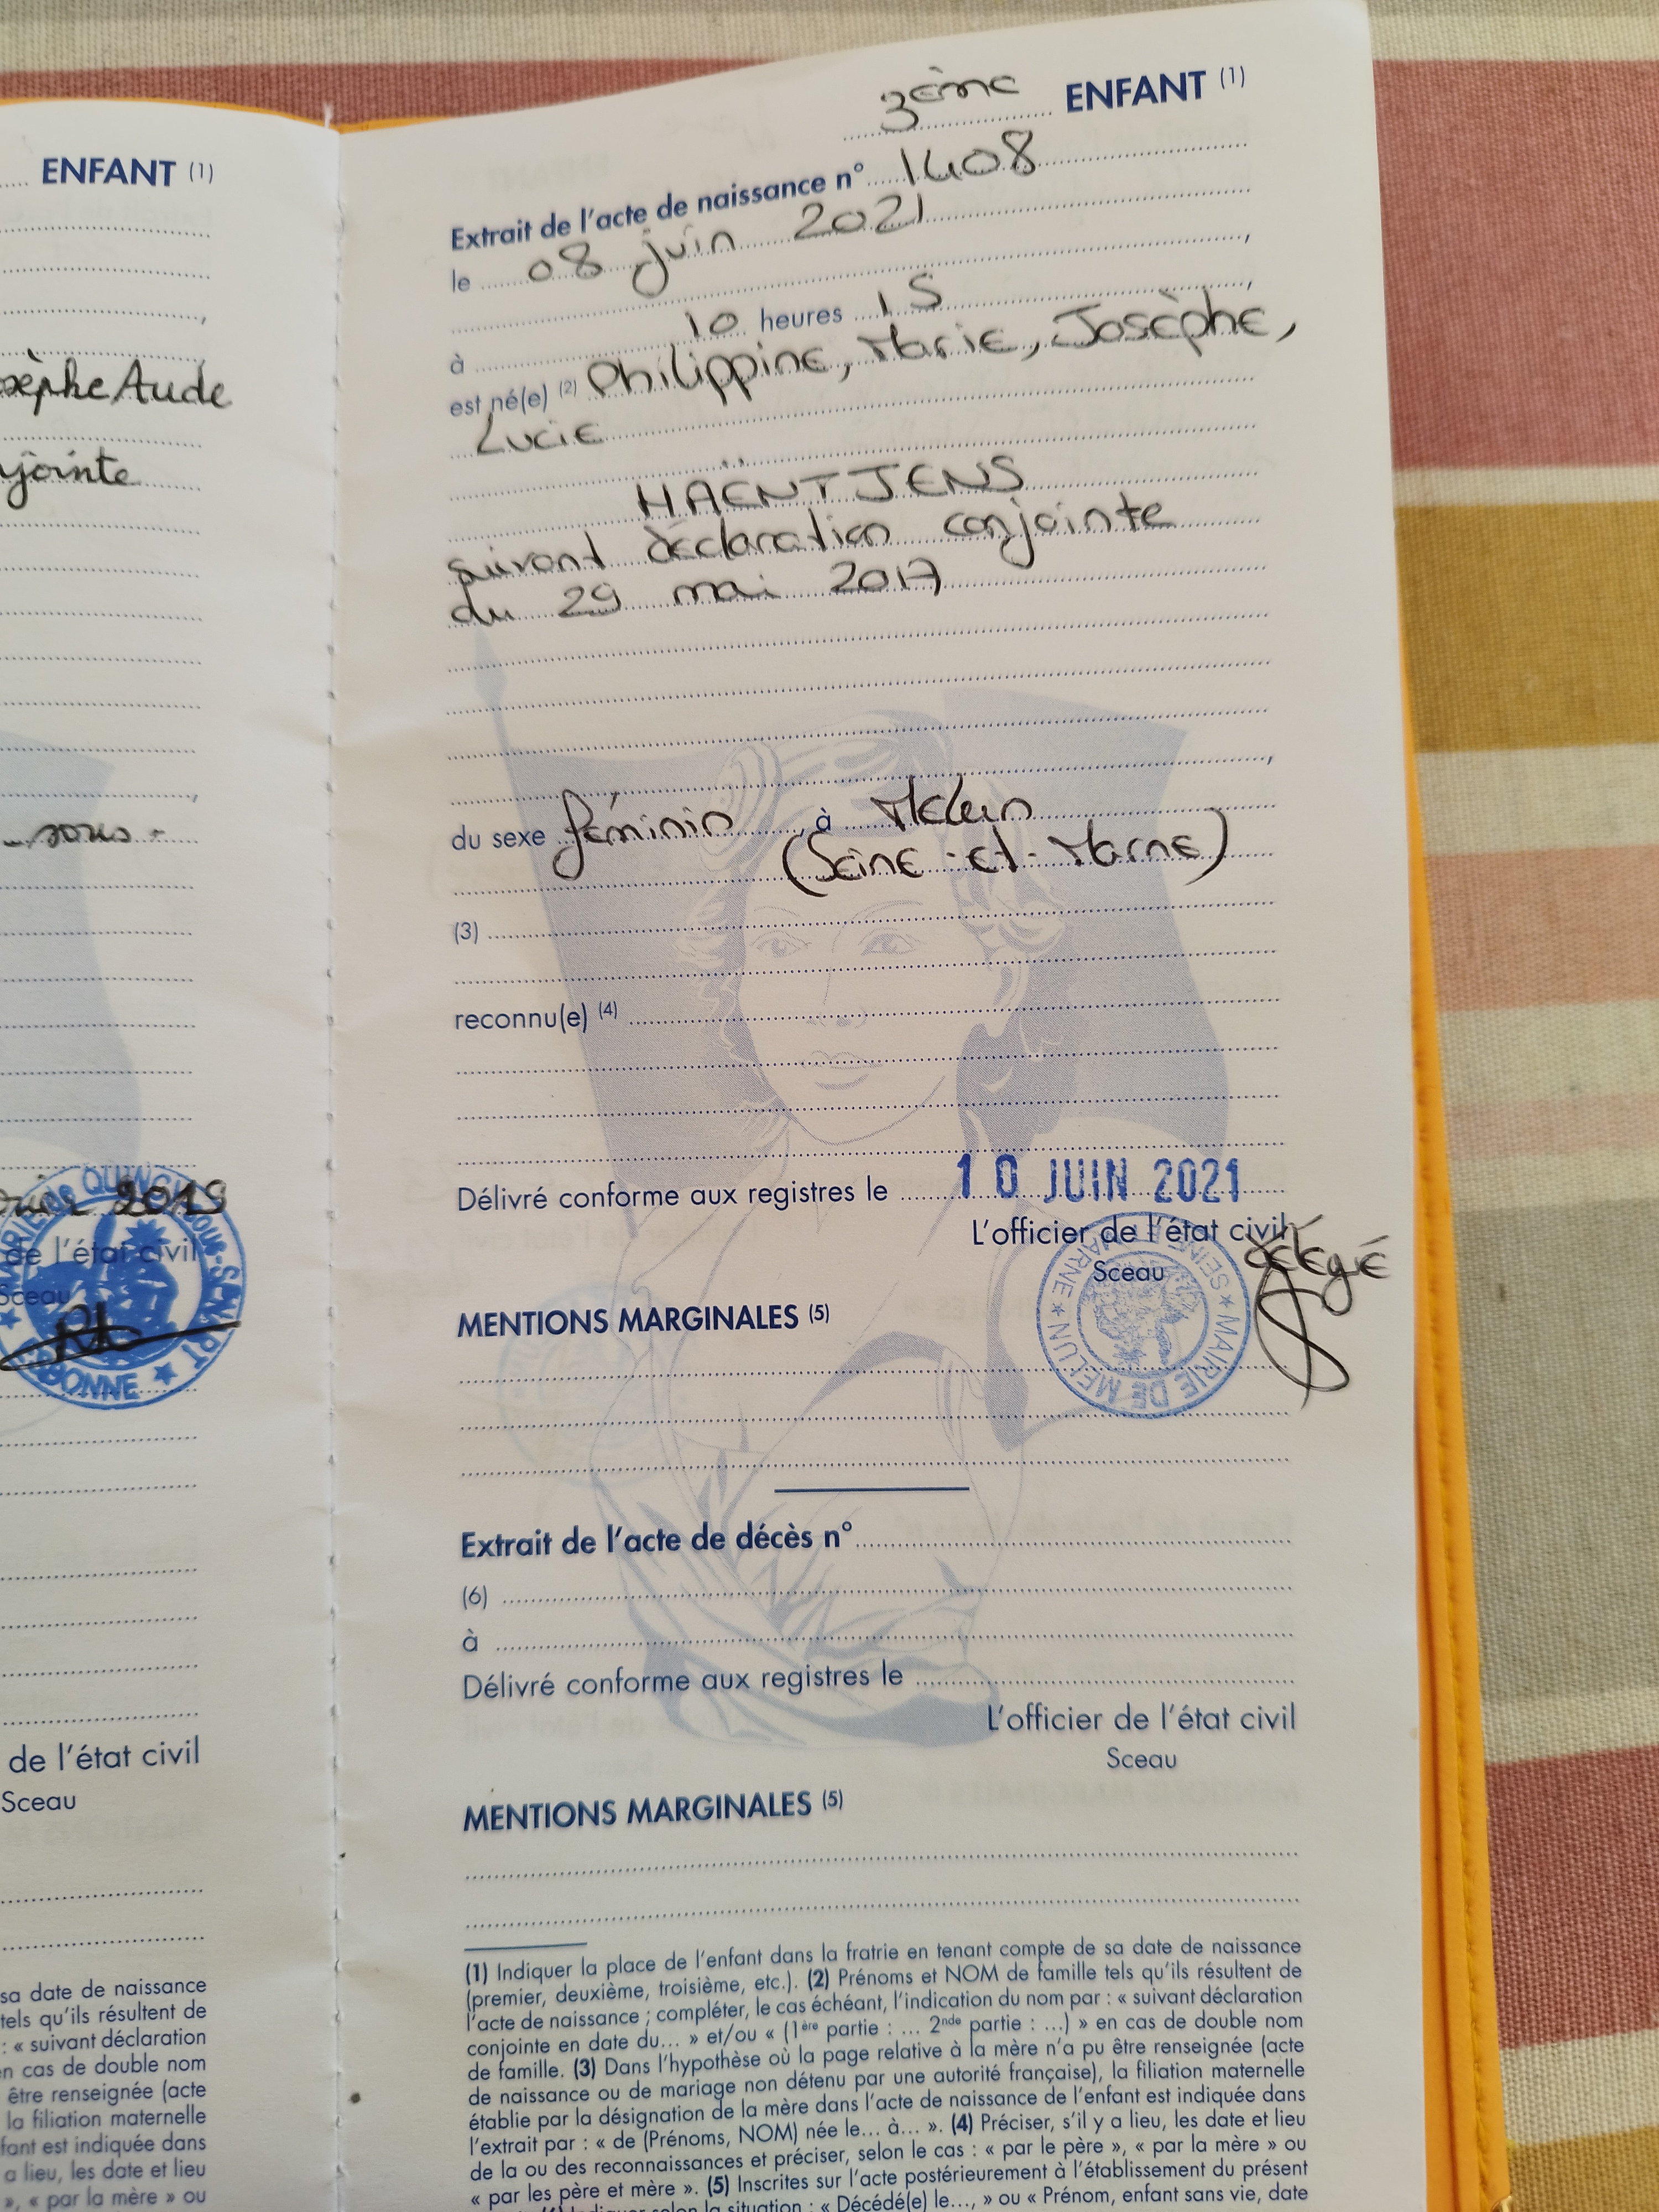 ENFANT (1)
sèphe Aude
jointe
sous
2019
de l'état civil
Sceau
QUINCY-SOUS-SÉNART
de l'état civil
Sceau
sa date de naissance
tels qu'ils résultent de
: « suivant déclaration
en cas de double nom
être renseignée (acte
la filiation maternelle
fant est indiquée dans
a lieu, les date et lieu
», « par la mère » ou
3ème ENFANT (1)
Extrait de l'acte de naissance n° 1408
le 08 juin 2021
à 10 heures 15
est né(e) (2) Philippine, Marie, Josèphe,
Lucie
HAËNTJENS
suivant déclaration conjointe
du 29 mai 2017
du sexe féminin, à Melun
(Seine-et-Marne)
(3)
reconnu(e) (4)
Délivré conforme aux registres le 10 JUIN 2021
L'officier de l'état civil
délégué
Sceau
MAIRIE DE MELUN ★ SEINE ET MARNE ★
MENTIONS MARGINALES (5)
Extrait de l'acte de décès n°
(6)
à
Délivré conforme aux registres le
L'officier de l'état civil
Sceau
MENTIONS MARGINALES (5)
(1) Indiquer la place de l'enfant dans la fratrie en tenant compte de sa date de naissance
(premier, deuxième, troisième, etc.). (2) Prénoms et NOM de famille tels qu'ils résultent de
l'acte de naissance ; compléter, le cas échéant, l'indication du nom par : « suivant déclaration
conjointe en date du... » et/ou « (1ère partie : ... 2nde partie : ...) » en cas de double nom
de famille. (3) Dans l'hypothèse où la page relative à la mère n'a pu être renseignée (acte
de naissance ou de mariage non détenu par une autorité française), la filiation maternelle
établie par la désignation de la mère dans l'acte de naissance de l'enfant est indiquée dans
l'extrait par : « de (Prénoms, NOM) née le... à... ». (4) Préciser, s'il y a lieu, les date et lieu
de la ou des reconnaissances et préciser, selon le cas : « par le père », « par la mère » ou
« par les père et mère ». (5) Inscrites sur l'acte postérieurement à l'établissement du présent
Indiquer selon la situation : « Décédé(e) le..., » ou « Prénom, enfant sans vie, date